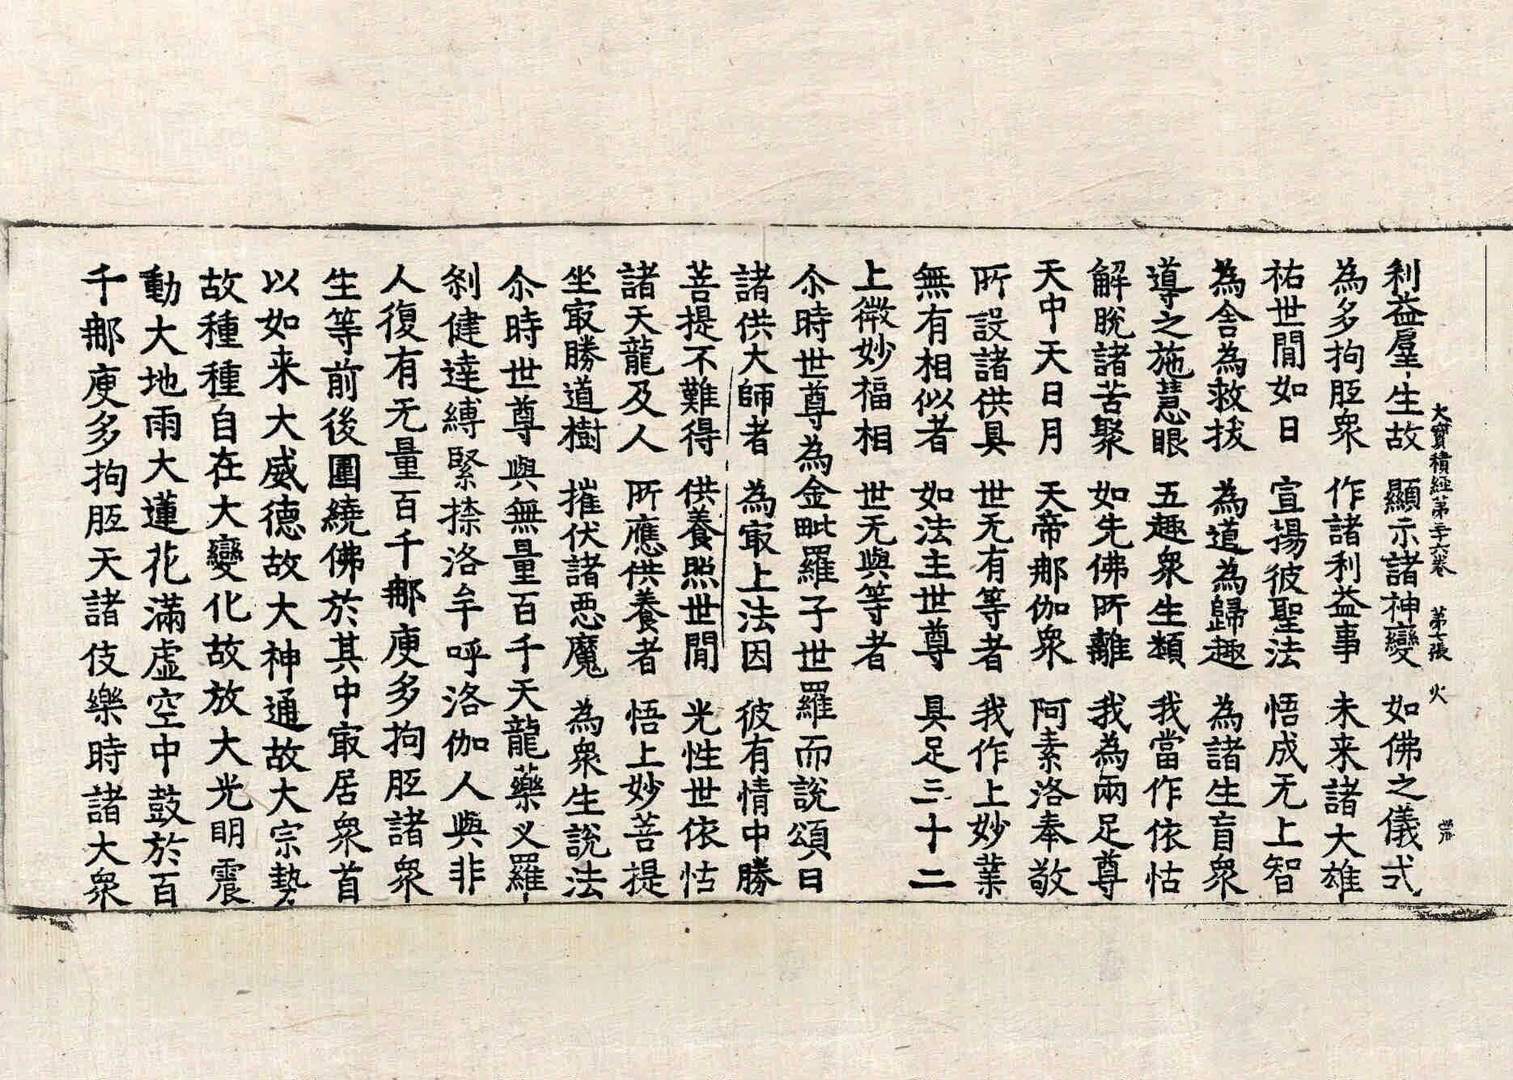 大寶積經第三十六卷　第七張　火
利益羣生故　顯示諸神變　如佛之儀式
為多拘胝衆　作諸利益事　未来諸大雄
祐世間如日　宣揚彼聖法　悟成无上智
為舍為救拔　為道為歸趣　為諸生盲衆
導之施慧眼　五趣衆生類　我當作依怙
解脫諸苦聚　如先佛所離　我為兩足尊
天中天日月　天帝那伽衆　阿素洛奉敬
所設諸供具　世无有等者　我作上妙業
無有相似者　如法主世尊　具足三十二
上微妙福相　世无與等者
尒時世尊為金毗羅子世羅而說頌曰
諸供大師者　為㝡上法因　彼有情中勝
菩提不難得　供養照世間　光性世依怙
諸天龍及人　所應供養者　悟上妙菩提
坐㝡勝道樹　摧伏諸惡魔　為衆生說法
尒時世尊與無量百千天龍藥义羅
剎健達縛緊捺洛牟呼洛伽人與非
人復有无量百千那庾多拘胝諸衆
生等前後圍繞佛於其中㝡居衆首
以如来大威德故大神通故大宗勢
故種種自在大變化故放大光明震
動大地雨大蓮花滿虛空中鼓於百
千那庾多拘胝天諸伎樂時諸大衆